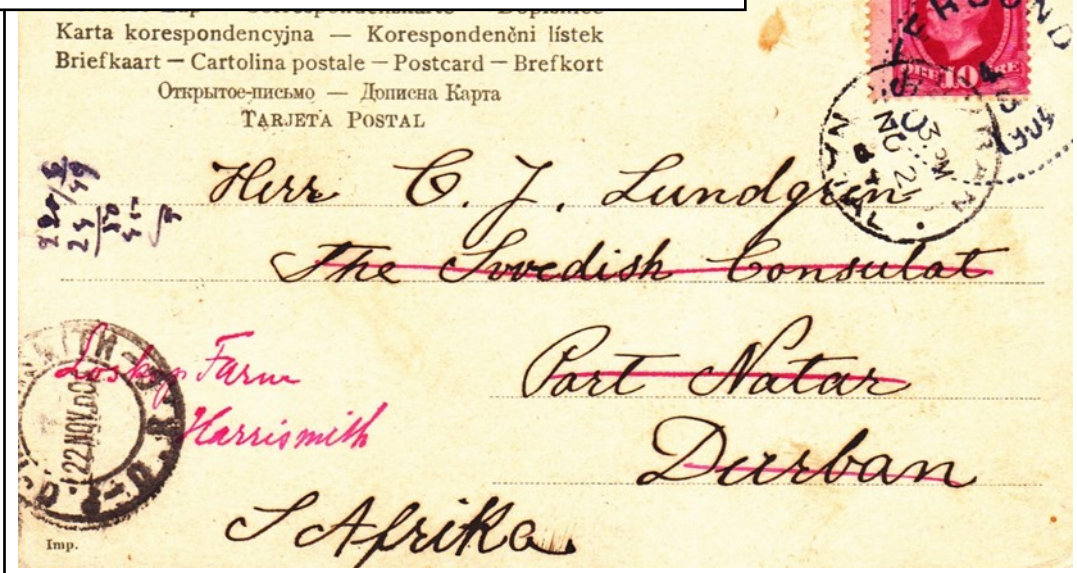 Karta korespondencyjna — Korespondenční lístek
Briefkaart — Cartolina postale — Postcard — Brefkort
Открытое-письмо — Дописна Карта
TARJETA POSTAL
ÖRE 10 ÖRE
DURBAN
3. PM
NO 21
NATAL
Herr C. J. Lundgren
The Swedish Consulat
Port Natar
Durban
S Afrika
Loskop Farm
Harrismith
22 NOV. 00
Imp.